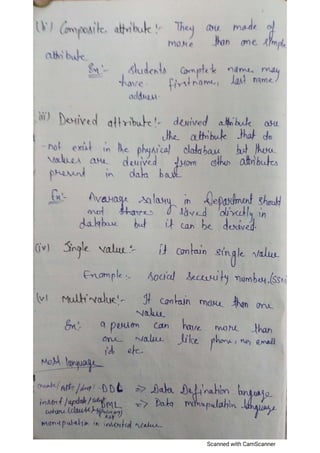 (ii) Composite attribute :- They are made of
more than one simple
attribute.
Ex:- Students complete name may
have firstname, last name
address
iii) Derived attribute:- derived attribute are
the attribute that do
- not exist in the physical database but there
values are derived from other attributes
present in data base
Ex:- Average salary in Department should
not saved directly in
database but it can be derived.
(iv) Single value :- it contain single value
Example:- Social Security number.
(v) Multi-value :- It contain more than one
value.
Ex:- a person can have more than
one value like phone no, email
id etc-
language
DDL => Data Defination language
insert/update/ DML => Data manupulation language
where (clause)
manupulation in inserted value
Scanned with CamScanner